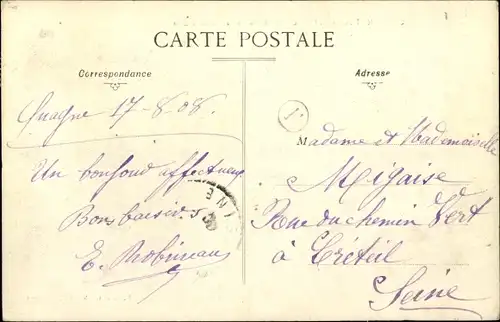 CARTE POSTALE
Correspondance
Adresse
17-8-08.
Madame et Mademoiselle
Un bonjour affectueux
Bons baisers
E. Robineau
Rue du chemin Vert
à Créteil
Seine